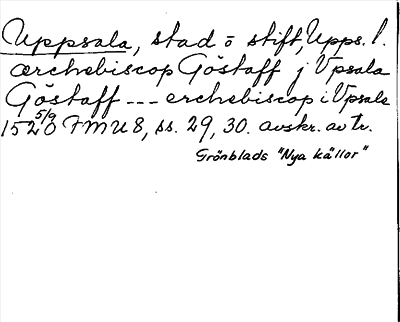 Uppsala, stad o stift, Upps. l.
ærchebiscop Göstaff j Vpsala
Göstaff --- erchebiscop i Vpsala
1520 5/9 FMU 8, ss. 29, 30. avskr. av tr.
Grönblads "Nya källor"